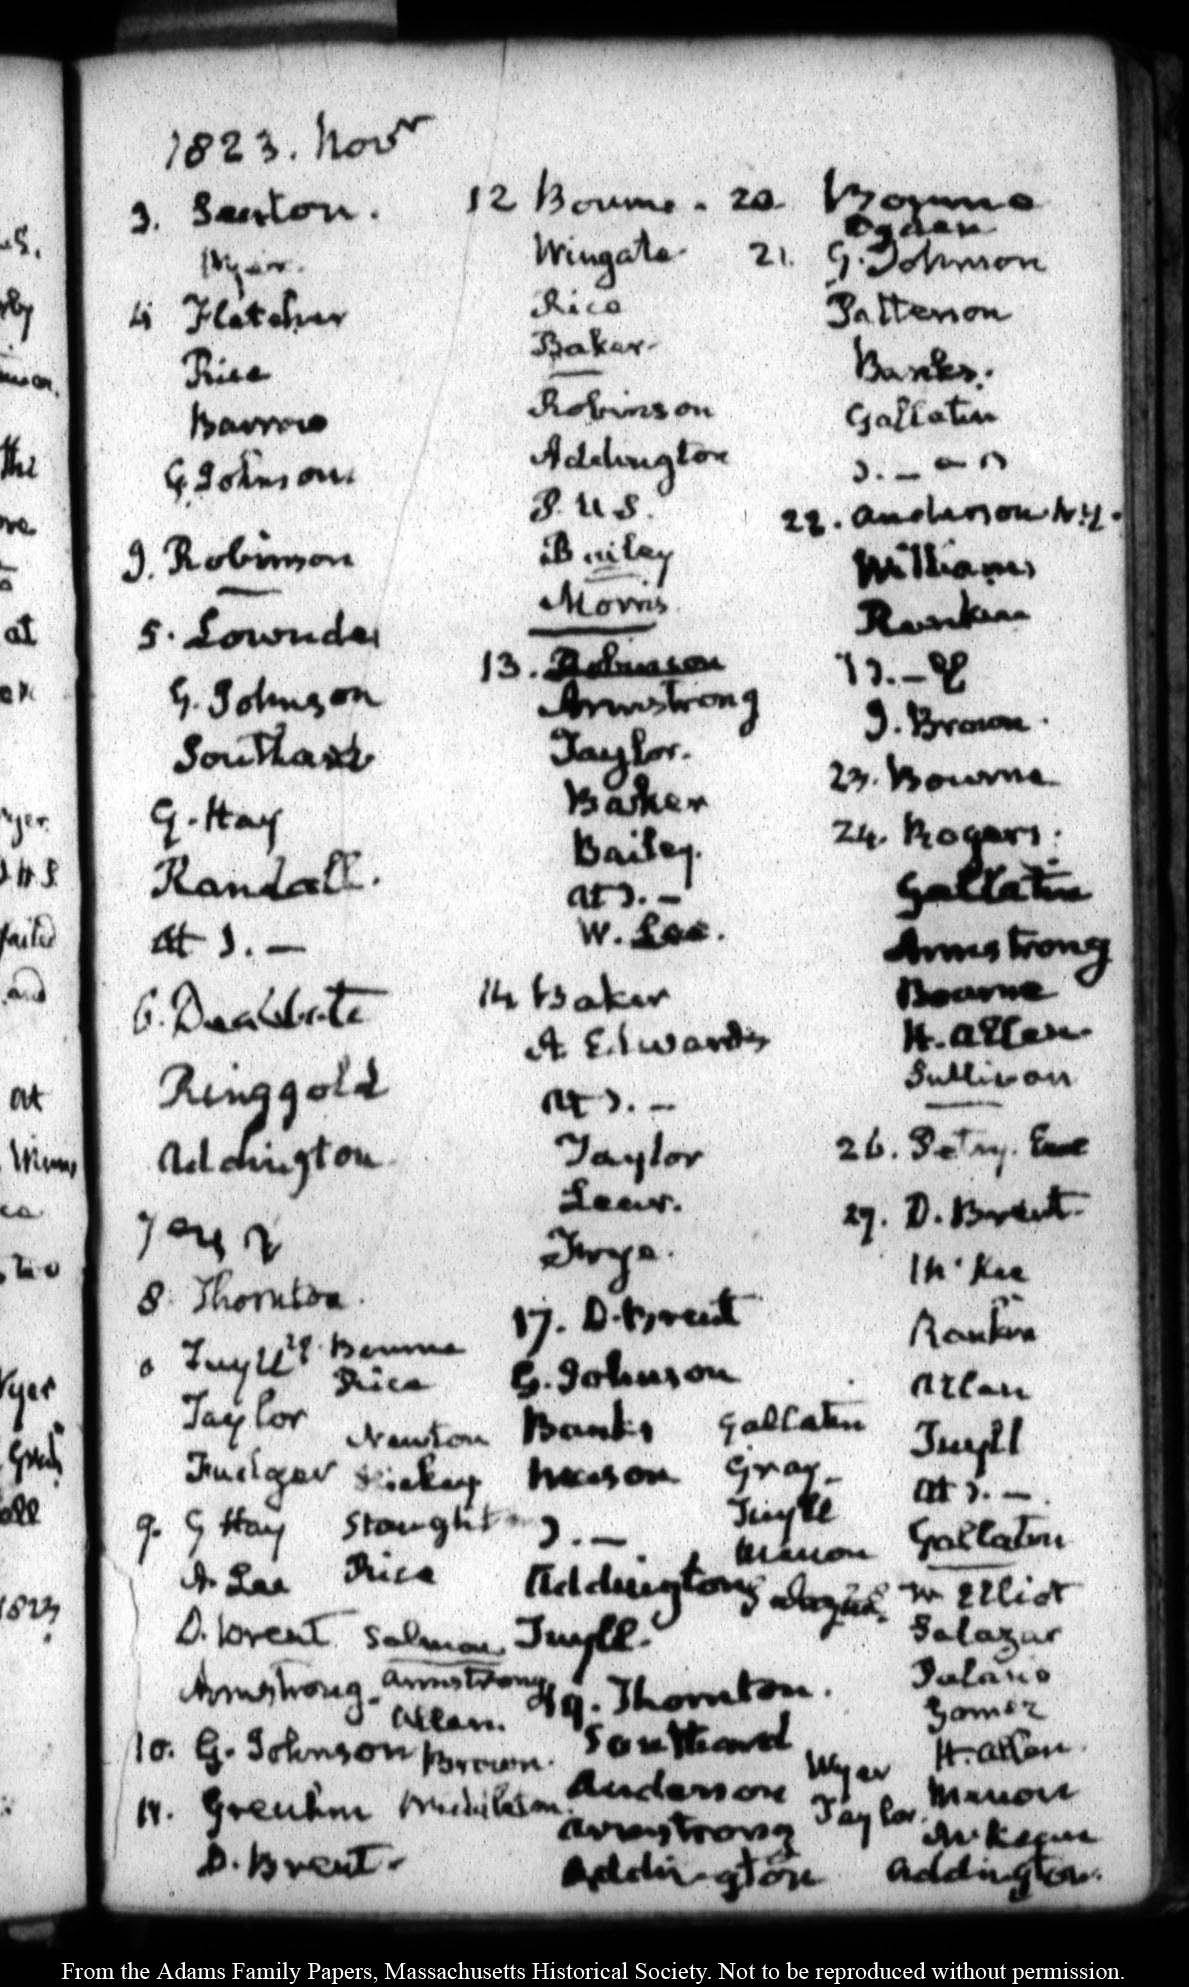 1823. Novr
3. Saxton.
Wyer.
4 Fletcher
Rice
Barrow
G. Johnson
9. Robinson
5. Lowndes
G. Johnson
Southard
G. Hay
Randall.
At J. —
6. Deabbate
Ringgold
Addington
7
8. Thornton.
Tuyll
Taylor
Fudger
9. G Hay
A. Lee
D. Brent
Armstrong.
10. G. Johnson
11. Greuhm
D. Brent.
Bourne
Rice
Newton
Dickey
Stought
Rice
Salmon
Armstrong
Allan.
Brown.
Middleton.
12 Bourne.
Wingate
Rice
Baker
Robinson
Addington
P. U S.
Bailey
Morris
13. Robinson
Armstrong
Taylor.
Baker
Bailey.
at J. —
W. Lee.
14 Baker
A Edwards
at J. —
Taylor
Lear.
Frye.
17. D. Brent
G. Johnson
Banks
Mason
J. —
Addington
Tuyll.
19. Thornton.
Southard
Anderson
Armstrong
Addington
Gallatin
Gray
Tuyll
Menou
Salazar.
Wyer
Taylor.
20. Bourne
Ogden
21. G. Johnson
Patterson
Banks.
Gallatin
22. Anderson N.Y.
Williams
Rankin
J. Brown.
23. Bourne
24. Rogers.
Gallatin
Armstrong
Bourne
H. Allen.
Sullivan
26. Petry.
27. D. Brent
McKee
Rankin
Allan
Tuyll
at J. —
Gallatin
W Elliot
Salazar
Palacio
Gomez
H. Allen.
Menou
Addington.
From the Adams Family Papers, Massachusetts Historical Society. Not to be reproduced without permission.